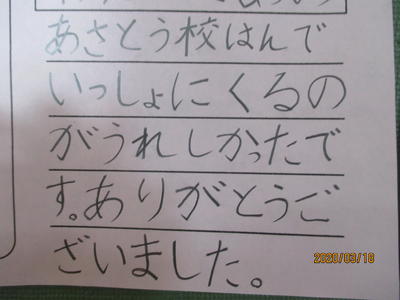 あさとう校はんで
いっしょにくるの
がうれしかったで
す。ありがとうご
ざいました。
2020/03/18